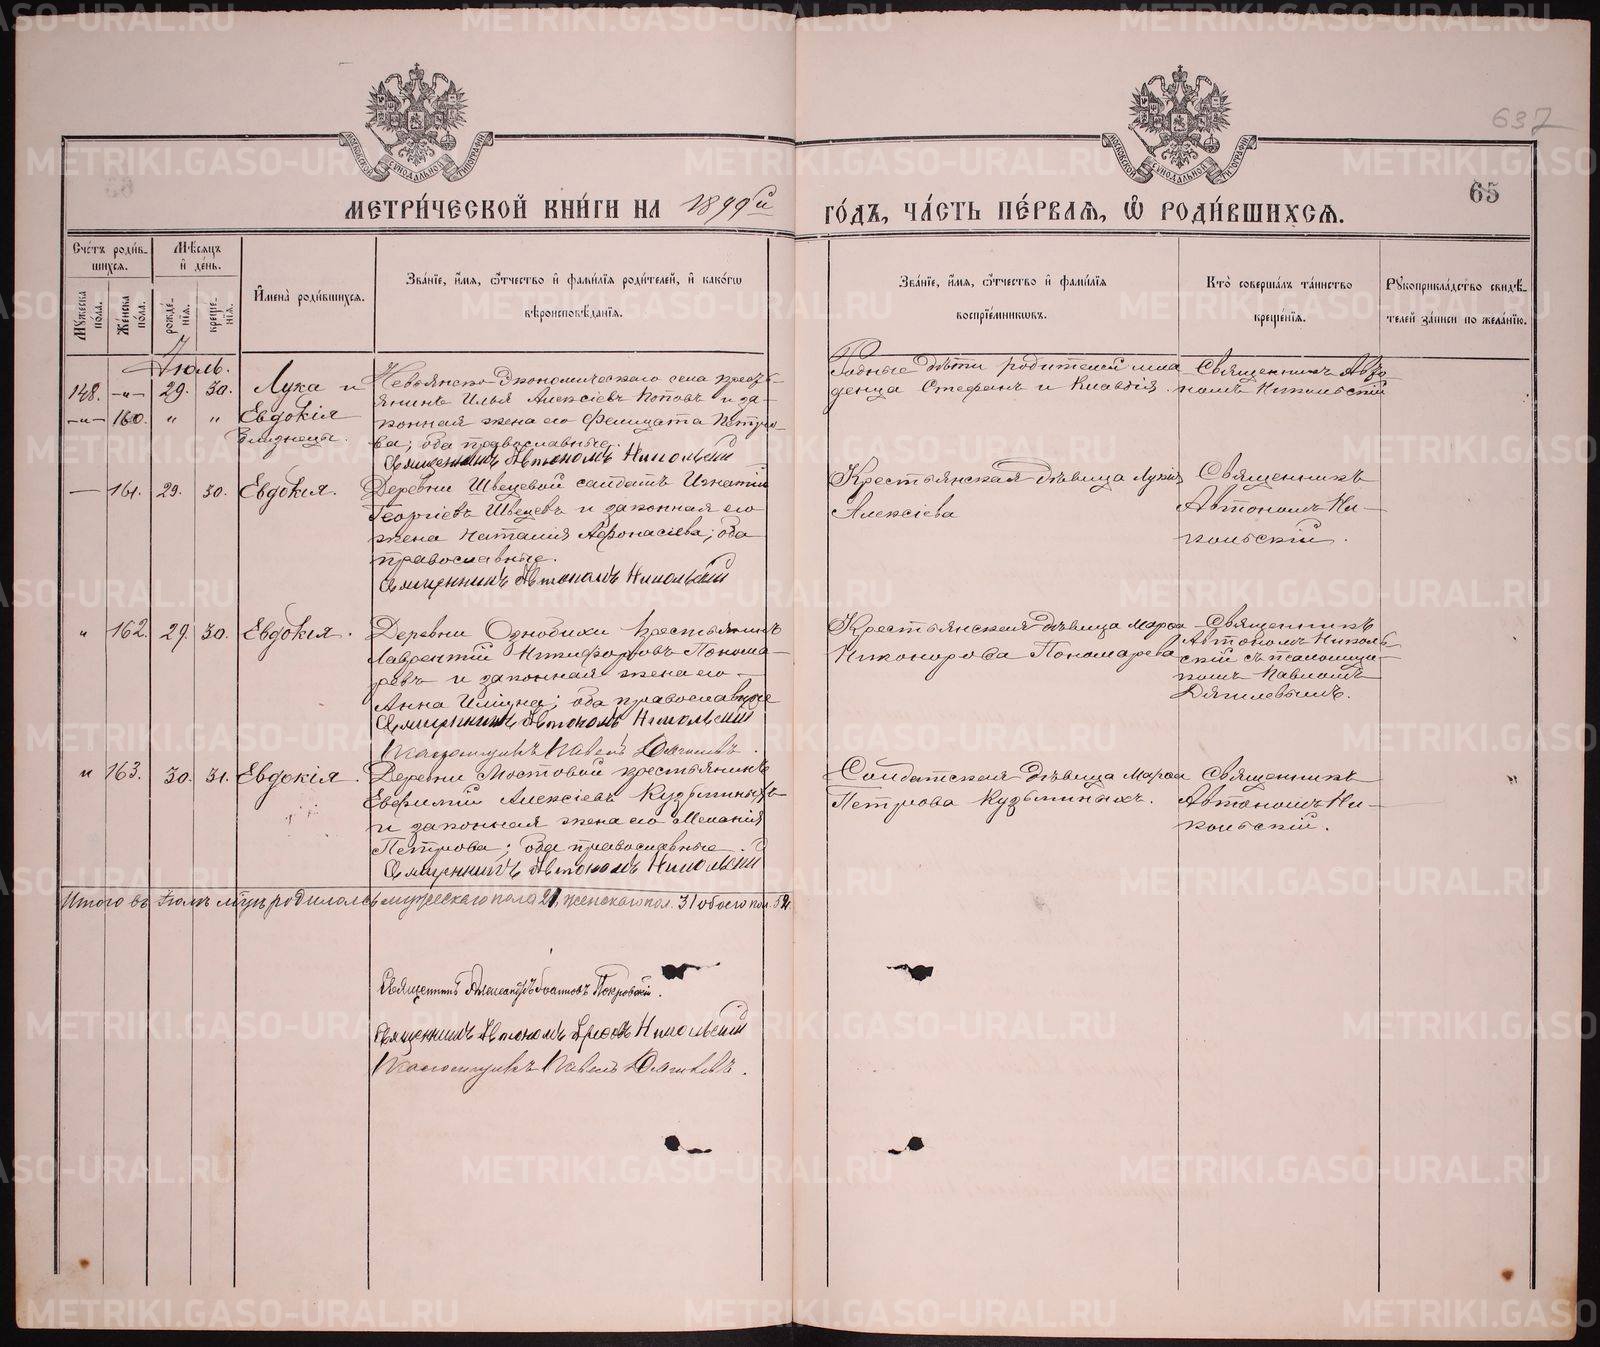 637
65
МЕТРИ́ЧЕСКОЙ КНИ́ГИ НА 1899й ГО́ДЪ, ЧА́СТЬ ПЕ́РВАЯ, Ѿ РОДИ́ВШИХСЯ.
Сче́тъ роди́вшихся.
Му́жеска по́ла.
Же́нска по́ла.
Мѣ́сяцъ и де́нь.
рожде́нїя.
креще́нїя.
Имена̀ роди́вшихся.
Зва́нїе, и́мя, ѻ́тчество и фами́лїя роди́телей, и како́гѡ
вѣроисповѣ́данїя.
Зва́нїе, и́мя, ѻ́тчество и фами́лїя
воспрїе́мникѡвъ.
Кто̀ соверша́лъ та́инство
креще́нїя.
Рꙋкоприкла́дство свидѣ́-
телей за́писи по жела́нїю.
Іюль.
148. -„- 29. 30. Лука и
-„- 160. „ „ Евдокія
близнецы.
Невьянско-Экономическаго села крест-
янинъ Илья Алексіевъ Поповъ и за-
конная жена его Фелицата Петро-
ва; оба православные.
Священникъ Автономъ Никольскій
Родные дѣти родителей мла
денца Стефанъ и Клавдія.
Священникъ Авто
номъ Никольскій
— 161. 29. 30. Евдокія.
Деревни Швецевой салдатъ Игнатій
Георгіевъ Швецевъ и законная его
жена Наталія Афонасіева; оба
православные.
Священникъ Автономъ Никольскій
Крестьянская дѣвица Лукія
Алексіева
Священникъ
Автономъ Ни-
кольскій.
„ 162. 29. 30. Евдокія.
Деревни Однобихи крестьянинъ
Лаврентій Никифоровъ Понома-
ревъ и законная жена его
Анна Ильина; оба православные
Священникъ Автономъ Никольскій
Псаломщикъ Павелъ Дягилевъ.
Крестьянская дѣвица Марѳа
Никонорова Пономарева
Священникъ
Автономъ Николь-
скій съ псаломщи-
комъ Павломъ
Дягилевымъ.
„ 163. 30. 31. Евдокія.
Деревни Мостовой крестьянинъ
Евфимій Алексіевъ Кузьминыхъ
и законная жена его Меланія
Петрова; оба православные.
Священникъ Автономъ Никольскій
Солдатская дѣвица Марѳа
Петрова Кузьминыхъ.
Священникъ
Автономъ Ни-
кольскій.
Итого въ Іюлѣ м-цѣ родилось мужескаго пола 21, женскаго пол. 31 обоего пол. 52.
Священникъ Александръ Іоанновъ Покровскій.
Священникъ Автономъ Никольскій
Псаломщикъ Павелъ Дягилевъ.
METRIKI.GASO-URAL.RU